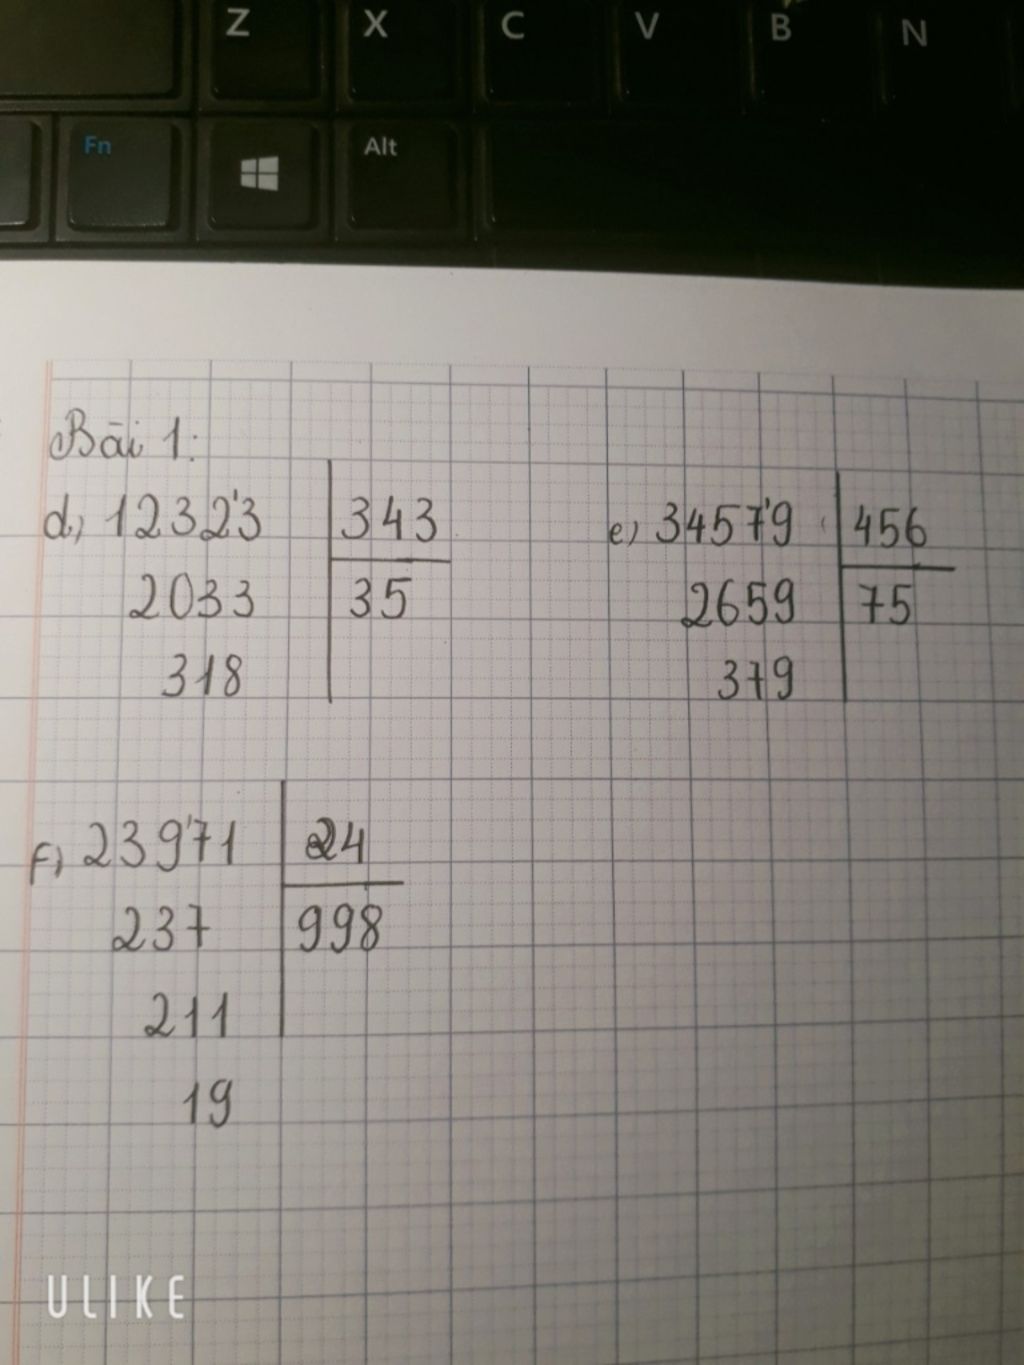 Z X C V B N
Fn Alt
Bài 1:
d) 12323 343
2033 35
318
e) 34579 456
2659 75
379
f) 23971 24
237 998
211
19
ULIKE